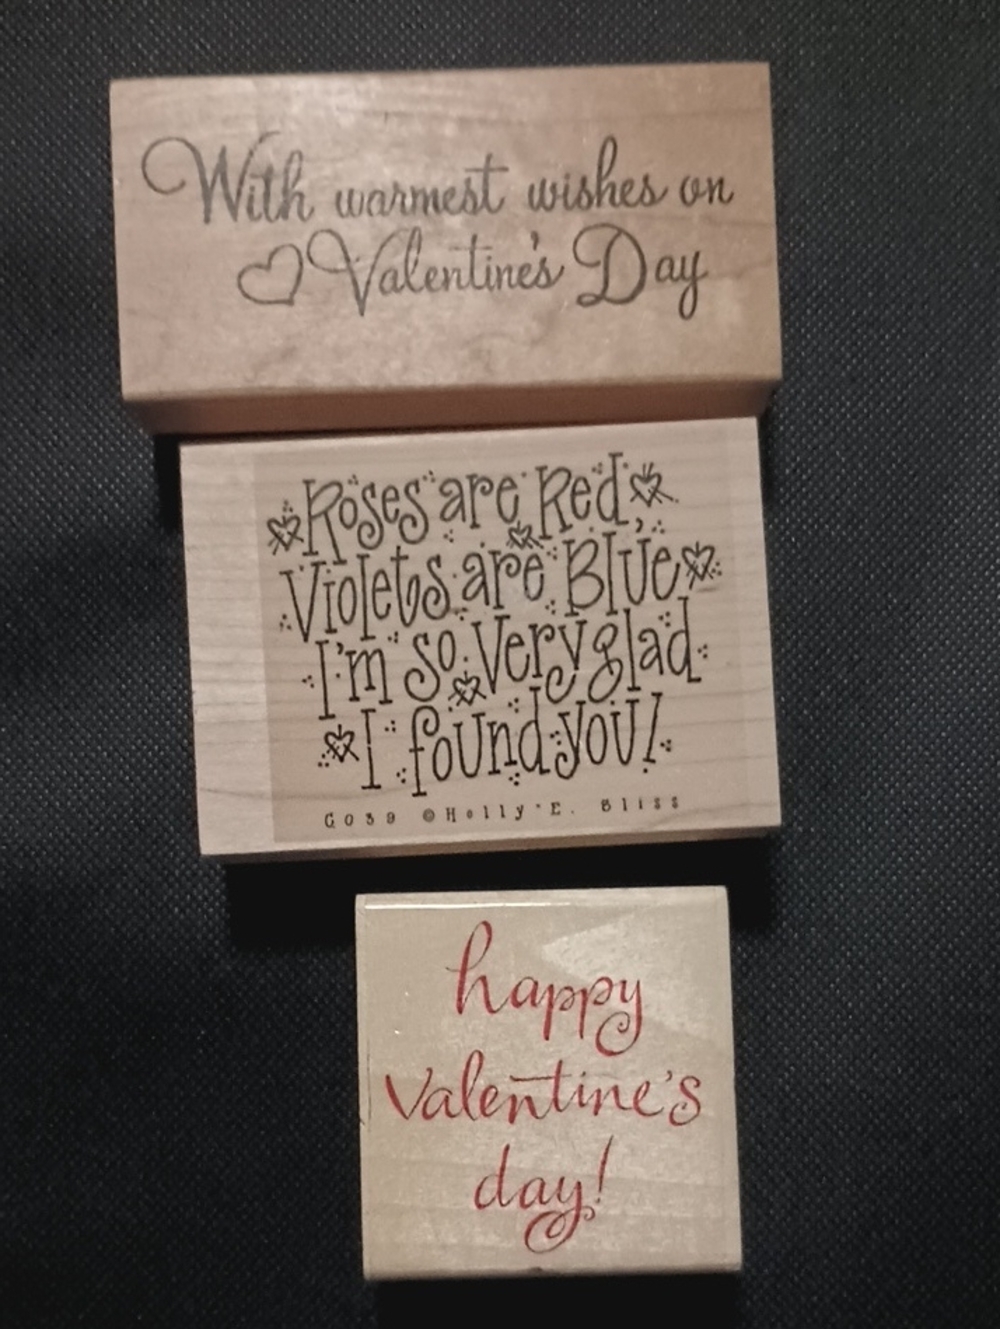 With warmest wishes on
Valentine's Day
Roses are Red,
Violets are Blue
I'm so Very glad
I found you!
G039 ©Holly E. Bliss
happy
valentine's
day!